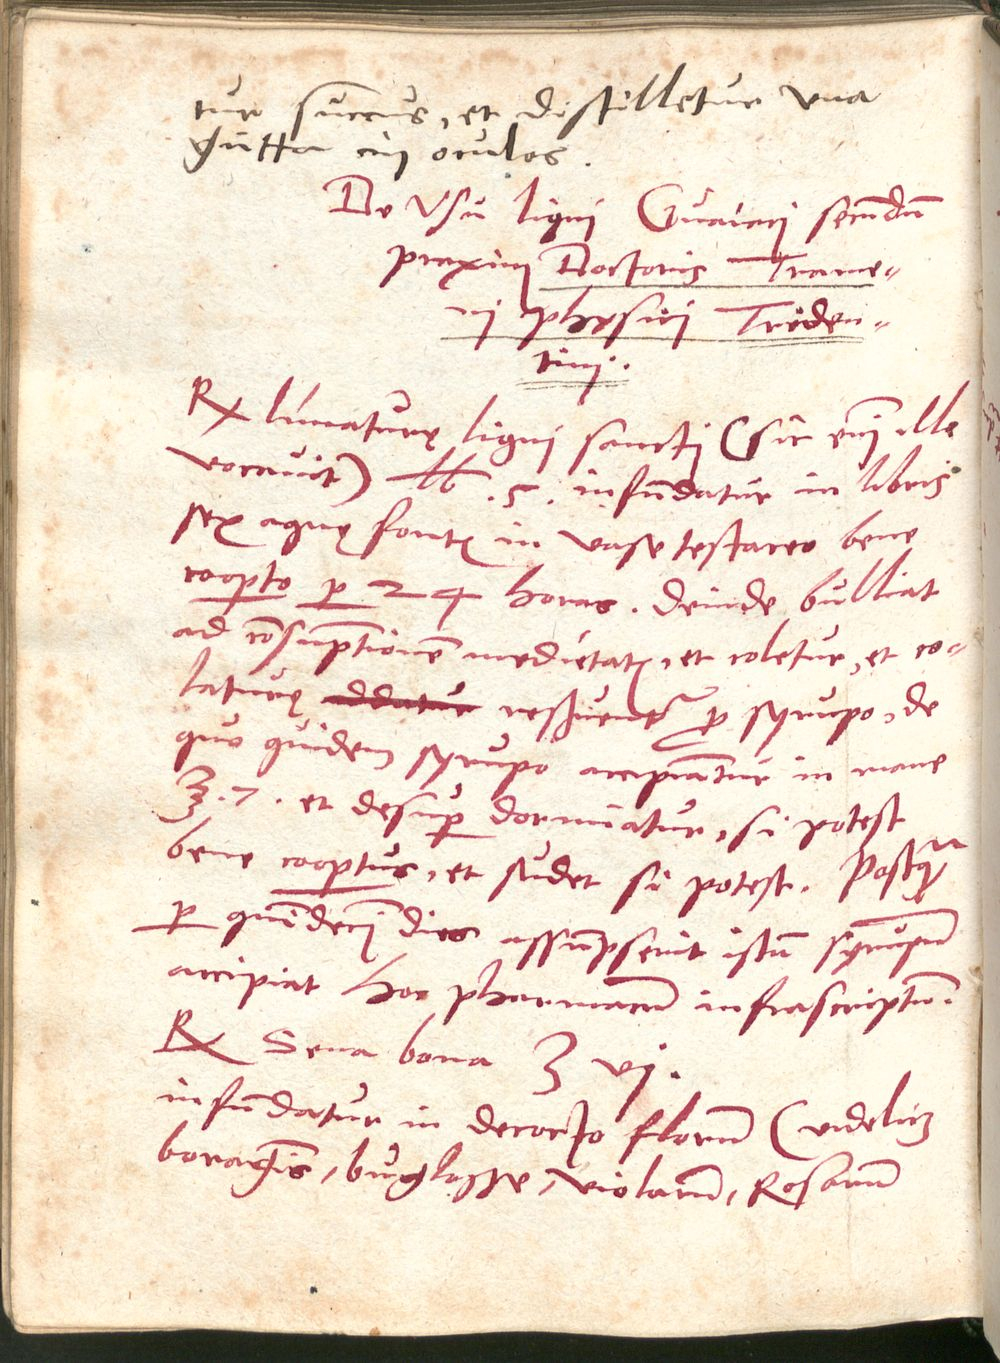 tur succus, et distilletur una
gutta in oculos.
De Usu ligni Guaiaci secundū
praxim Doctoris Trame-
ij physici Triden-
tini.
℞ limaturę ligni sancti (sic enī ille
vocavit) lb .5. infūdatur in libris
sex aquę fontꝭ in vase testaceo bene
coopto p 24 horas. deinde bulliat
ad cōsūptionē medietatꝭ, et coletur, et co-
laturę addatur p syrupo, de
quo quidem syrupo accipiātur in mane
℥.7. et desup dormiatur, si potest
bene cooptus, et sudet si potest. Postq̄
p quīdecī dies assūpserit istū syrupū
accipiat hoc pharmacū infrascriptū.
℞ Sena bona ʒ vj.
infūdatur in decocto florū (videlicꝫ
boragīs, buglosse, violarū, Rosarū